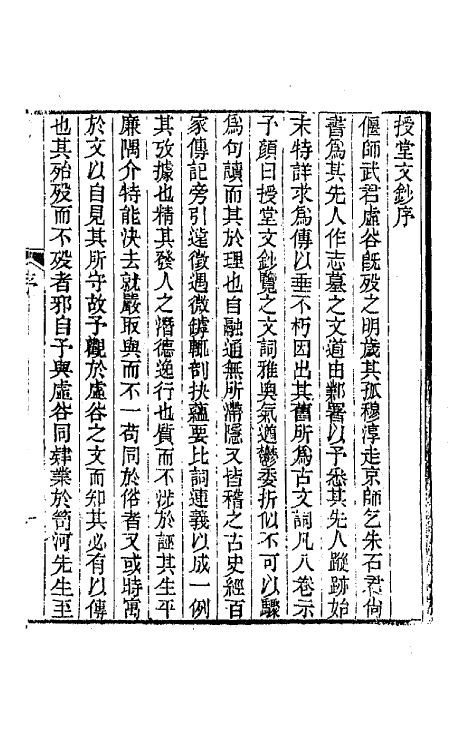 授堂文鈔序
偃師武君虛谷旣歿之明歲其孤穆淳走京師乞朱石君尙
書爲其先人作志墓之文道由鄴署以予悉其先人蹤跡始
末特詳求爲傳以垂不朽因出其舊所爲古文詞凡八卷示
予顏曰授堂文鈔覽之文詞雅奧氣遒鬱委折似不可以驟
爲句讀而其於理也自融通無所滯隱又皆稽之古史經百
家傳記旁引遠徵遇微罅輒剖抉蘊要比詞連義以成一例
其攷據也精其發人之潛德逸行也質而不涉於誣其生平
廉隅介特能決去就嚴取與而不一苟同於俗者又或時寓
於文以自見其所守故予觀於虛谷之文而知其必有以傳
也其殆歿而不歿者邪自予與虛谷同肄業於笥河先生至